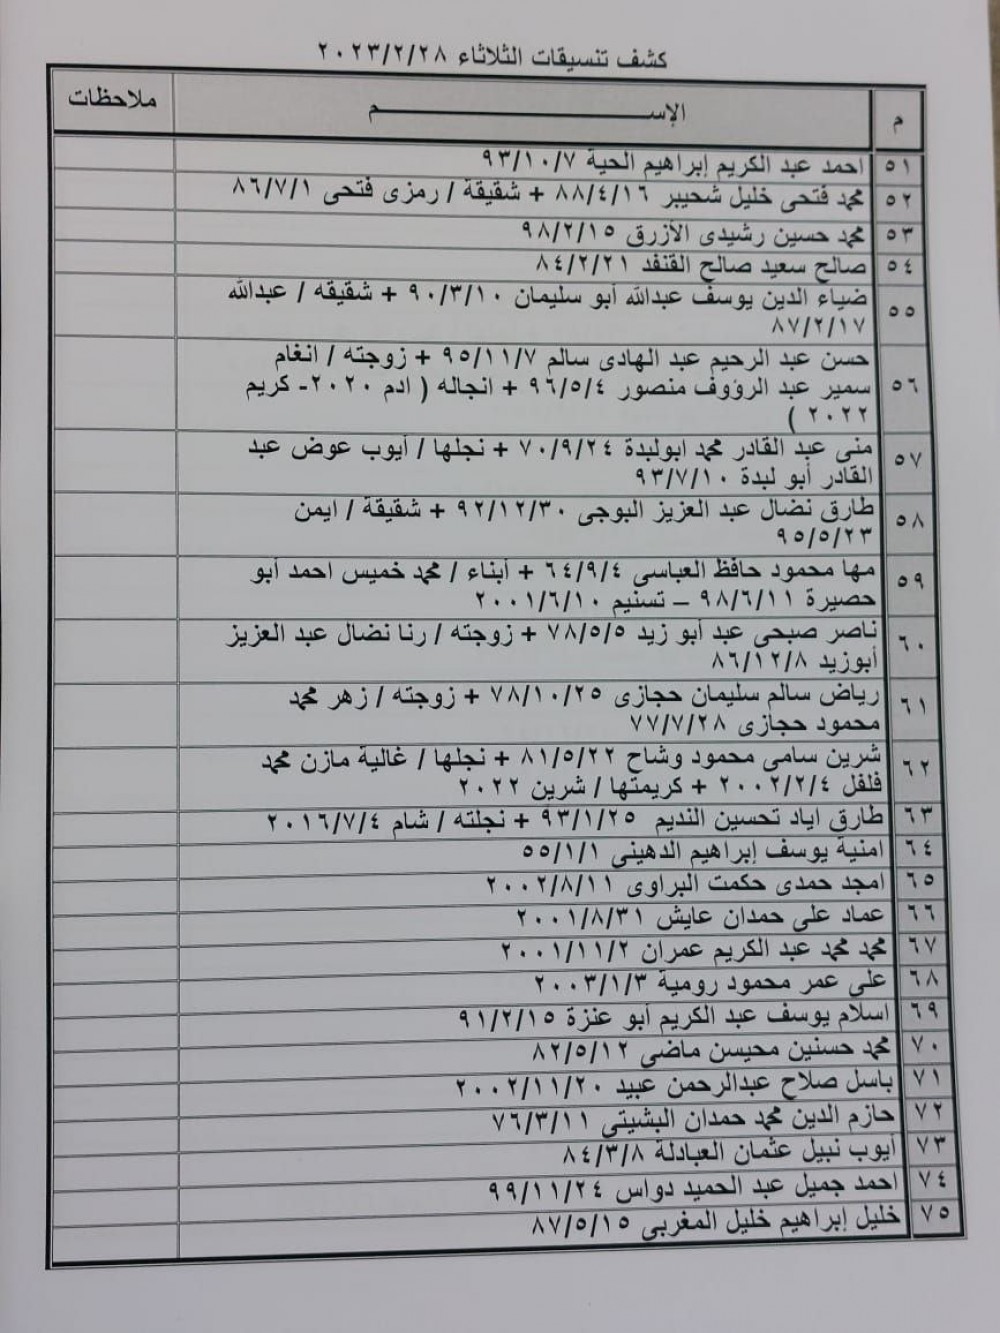 كشف تنسيقات الثلاثاء ٢٠٢٣/٢/٢٨
م الإســـم ملاحظات
٥١ احمد عبد الكريم إبراهيم الحية ٩٣/١٠/٧
٥٢ محمد فتحى خليل شحيبر ٨٨/٤/١٦ + شقيقة / رمزى فتحى ٨٦/٧/١
٥٣ محمد حسين رشيدى الأزرق ٩٨/٢/١٥
٥٤ صالح سعيد صالح القنفد ٨٤/٢/٢١
٥٥ ضياء الدين يوسف عبدالله أبو سليمان ٩٠/٣/١٠ + شقيقه / عبدالله
٨٧/٢/١٧
٥٦ حسن عبد الرحيم عبد الهادى سالم ٩٥/١١/٧ + زوجته / انغام
سمير عبد الرؤوف منصور ٩٦/٥/٤ + انجاله ( ادم ٢٠٢٠- كريم
٢٠٢٢ )
٥٧ منى عبد القادر محمد ابولبدة ٧٠/٩/٢٤ + نجلها / أيوب عوض عبد
القادر أبو لبدة ٩٣/٧/١٠
٥٨ طارق نضال عبد العزيز البوجى ٩٢/١٢/٣٠ + شقيقة / ايمن
٩٥/٥/٢٣
٥٩ مها محمود حافظ العباسى ٦٤/٩/٤ + أبناء / محمد خميس احمد أبو
حصيرة ٩٨/٦/١١ – تسنيم ٢٠٠١/٦/١٠
٦٠ ناصر صبحى عبد أبو زيد ٧٨/٥/٥ + زوجته / رنا نضال عبد العزيز
أبوزيد ٨٦/١٢/٨
٦١ رياض سالم سليمان حجازى ٧٨/١٠/٢٥ + زوجته / زهر محمد
محمود حجازى ٧٧/٧/٢٨
٦٢ شرين سامى محمود وشاح ٨١/٥/٢٢ + نجلها / غالية مازن محمد
فلفل ٢٠٠٢/٢/٤ + كريمتها / شرين ٢٠٢٢
٦٣ طارق اياد تحسين النديم ٩٣/١/٢٥ + نجلته / شام ٢٠١٦/٧/٤
٦٤ امنية يوسف إبراهيم الدهينى ٥٥/١/١
٦٥ امجد حمدى حكمت البراوى ٢٠٠٢/٨/١١
٦٦ عماد على حمدان عايش ٢٠٠١/٨/٣١
٦٧ محمد محمد عبد الكريم عمران ٢٠٠١/١١/٢
٦٨ على عمر محمود رومية ٢٠٠٣/١/٣
٦٩ اسلام يوسف عبد الكريم أبو عنزة ٩١/٢/١٥
٧٠ محمد حسنين محيسن ماضى ٨٢/٥/١٢
٧١ باسل صلاح عبدالرحمن عبيد ٢٠٠٢/١١/٢٠
٧٢ حازم الدين محمد حمدان البشيتى ٧٦/٣/١١
٧٣ أيوب نبيل عثمان العبادلة ٨٤/٣/٨
٧٤ احمد جميل عبد الحميد دواس ٩٩/١١/٢٤
٧٥ خليل إبراهيم خليل المغربى ٨٧/٥/١٥